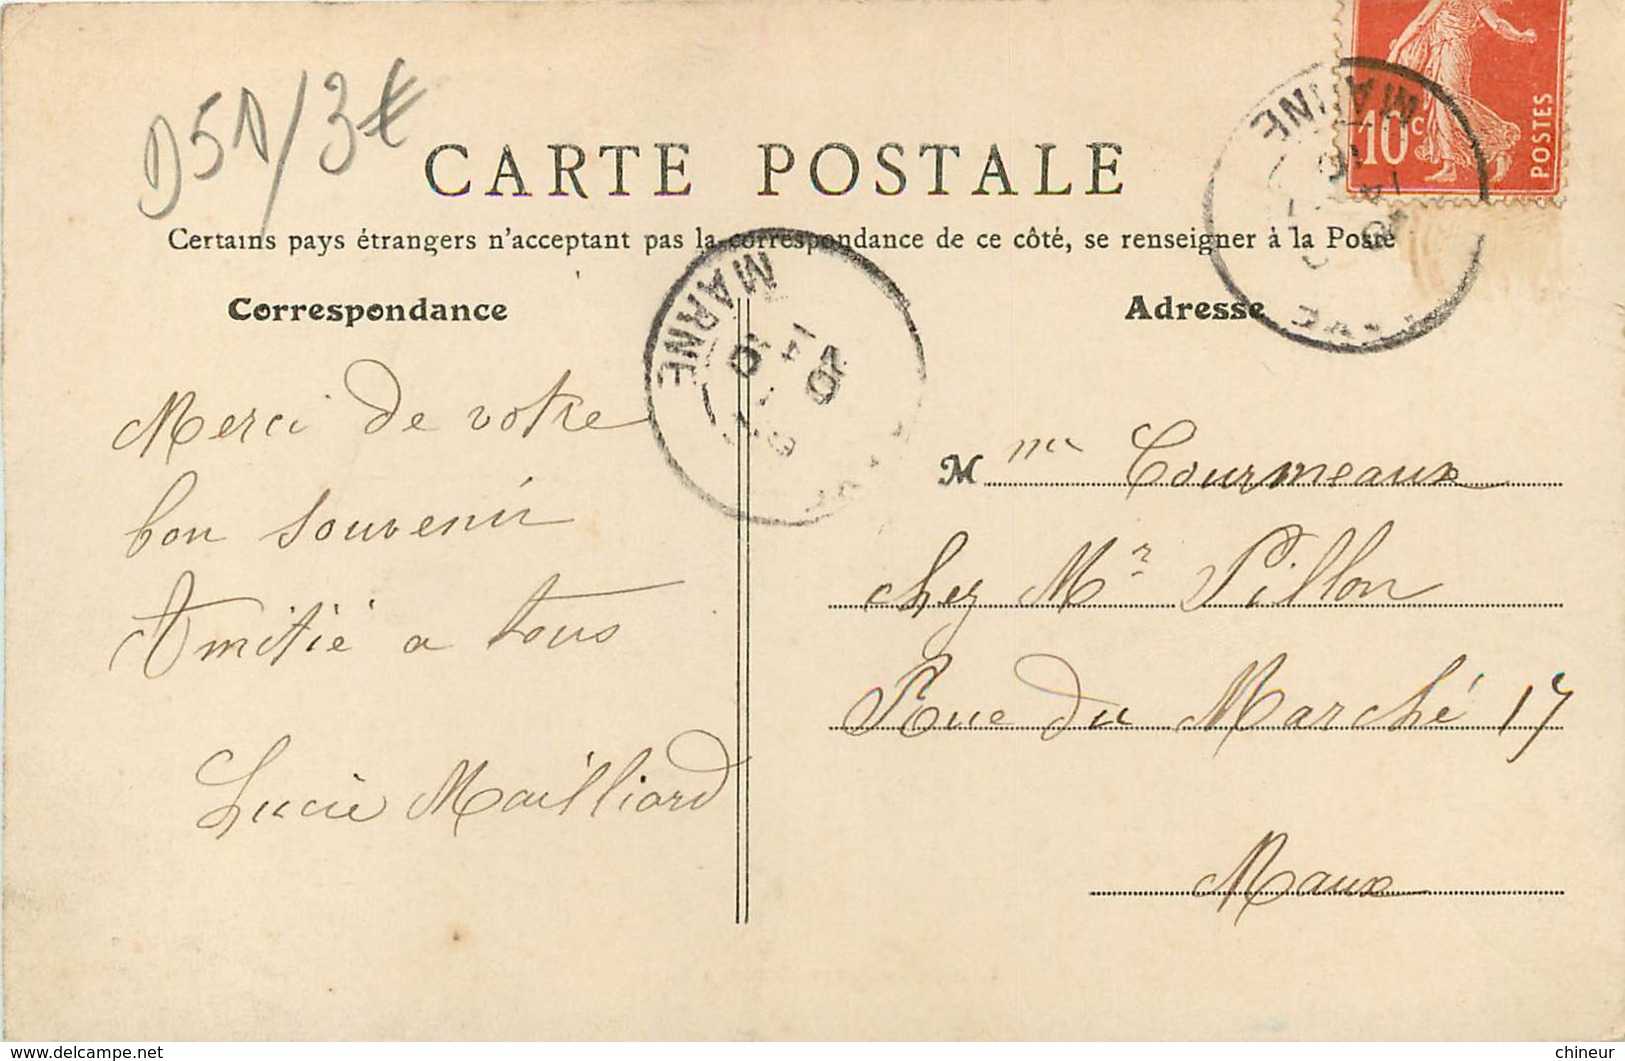 D51/3€
CARTE POSTALE
Certains pays étrangers n'acceptent pas la correspondance de ce côté, se renseigner à la Poste
Correspondance
Adresse
10c
POSTES
MARNE
MARNE
Merci de votre
bon souvenir
Amitié a tous
Lucie Mailliard
Mme Courmeaux
chez Mr Pillon
Rue du Marché 17
Maux
delcampe.net
chineur